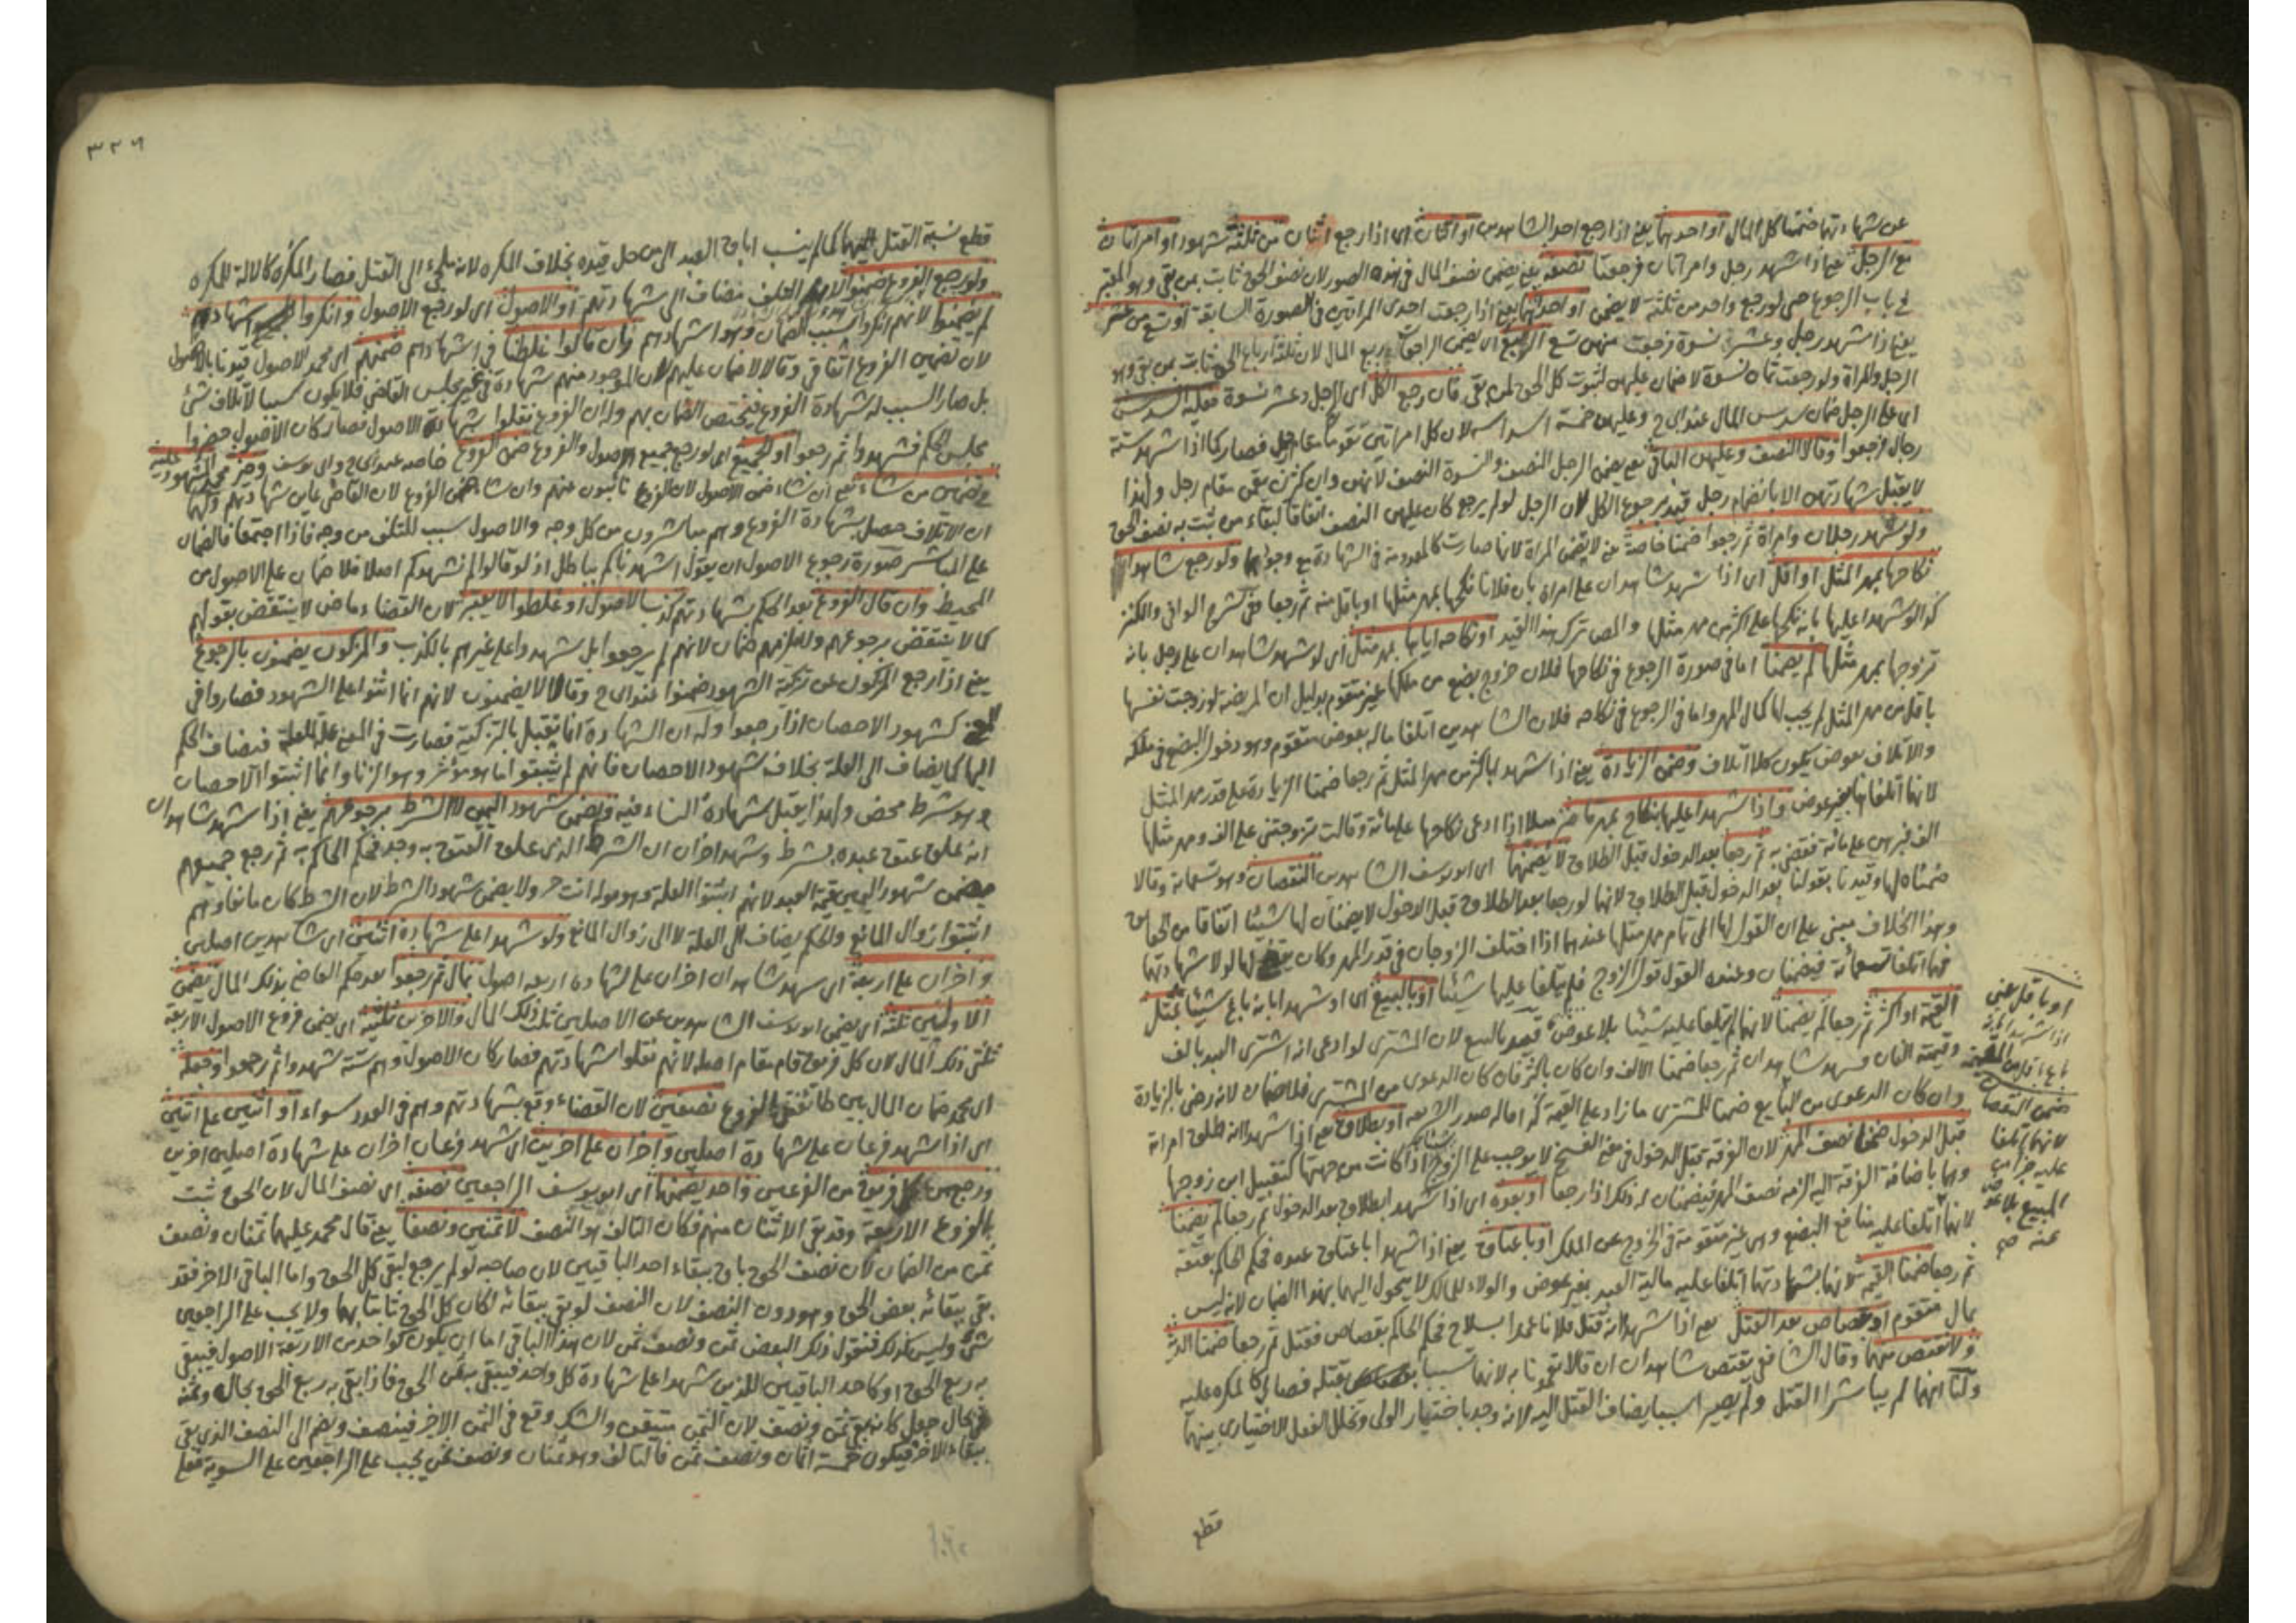 عن شهادتهما ضمنا كل المال او احدهما يعني اذا رجع احد الشاهدين او اثنان اي اذا رجع اثنان من ثلثة شهود او امراتان
مع الرجل يعني اذا شهد رجل وامراتان فرجعتا نصفه يعني يضمن نصف المال في هذه الصور لان نصف الحق ثابت بمن بقي وهو المعتبر
في باب الرجوع حتى لو رجع واحد من ثلثة لا يضمن او احديهما يعني اذا رجعت احدى المراتين في الصورة السابقة او تسع من عشر
يعني اذا شهد رجل وعشر نسوة فرجعت منهن تسع الربع اي يضمن الراجعات ربع المال لان ثلثة ارباع الحق ثابت بمن بقي وهو
الرجل والمراة ولو رجعت ثمان نسوة لا ضمان عليهن لثبوت كل الحق لمن بقي فان رجع الكل اي الرجل وعشر نسوة فعليه السدس
اي على الرجل ضمان سدس المال عند ابي ح وعليهن خمسة اسداسه لان كل امراتين تقوما مقام رجل فصار كما اذا شهد ستة
رجال فرجعوا وقالا النصف وعليهن الباقي يعني يضمن الرجل النصف والنسوة النصف لانهن وان كثرن يقمن مقام رجل ولهذا
لا يقبل شهادتهن الا بانضمام رجل قيد برجوع الكل لان الرجل لو لم يرجع كان عليهن النصف اتفاقا لبقاء من ثبت به نصف الحق
ولو شهد رجلان وامراة ثم رجعوا ضمنا خاصة يعني لا يضمن المراة لانها صارت كالمعدومة في الشهادة مع وجودهما ولو رجع شاهدا
نكاحها بمهر المثل او اقل اي اذا شهد شاهدان على امراة بان فلانا نكحها بمهر مثلها او باقل منه ثم رجعا وفي شرح الوافي والكنز
كذا لو شهدا عليها بانه نكحها على اكثر من مهر مثلها والمص ترك هذا القيد او نكاحه اياها بمهر مثل اي لو شهد شاهدان على رجل بانه
تزوجها بمهر مثلها لم يضمنا اما في صورة الرجوع في نكاحها فلان خروج بضع من ملكها غير متقوم بدليل ان المريضة لو زوجت نفسها
باقل من مهر المثل لم يجب لها كمال المهر واما في الرجوع في نكاحه فلان الشاهدين اتلفا ماله بعوض متقوم وهو دخول البضع في ملكه
والاتلاف بعوض يكون كلا اتلاف وضمنا الزيادة يعني اذا شهدا باكثر من مهر المثل ثم رجعا ضمنا الزيادة على قدر مهر المثل
لانهما اتلفاها بغير عوض واذا شهدا عليها بنكاح بمهر ما مثلا اذا ادعى نكاحها على مائة وقالت تزوجتني على الف ومهر مثلها
الف فبرهن على مائة فقضي به ثم رجعا بعد الدخول قبل الطلاق لا يضمنهما اي ابو يوسف الشاهدين النقصان وهو تسعمائة وقالا
ضمناه لها وقيدنا بقولنا بعد الدخول قبل الطلاق لانهما لو رجعا بعد الطلاق قبل الدخول لا يضمنان لها شيئا اتفاقا من الحقايق
وهذا الخلاف مبني على ان القول لها الى تمام مهر مثلها عندهما اذا اختلف الزوجان في قدر المهر وكان يقضى لها لولا شهادتهما
فهما اتلفا تسعمائة فيضمنان وعنده القول قول الزوج فلم يتلفا عليها شيئا او بالبيع اي او شهدا بانه باع شيئا بمثل
القيمة او اكثر ثم رجعا لم يضمنا لانهما لم يتلفا عليه شيئا بلا عوض قيد بالبيع لان المشتري لو ادعى انه اشترى العبد بالف
وقيمته الفان فشهد شاهدان ثم رجعا ضمنا الالف وان كان بالكثر فان كان الدعوى من المشتري فلا ضمان لانه رضي بالزيادة
وان كان الدعوى من البايع ضمنا للمشتري ما زاد على القيمة كذا قاله صدر الشريعة او بطلاق يعني اذا شهدا انه طلق امراته
قبل الدخول ضمنا نصف المهر لان الفرقة قبل الدخول في معنى الفسخ لا يوجب على الزوج شيئا اذا كانت من جهتها كتقبيل ابن زوجها
وهما باضافة الفرقة اليه الزماه نصف المهر فيضمنان له ذلك اذا رجعا او بعده اي اذا شهدا بطلاق بعد الدخول ثم رجعا لم يضمنا
لانهما اتلفا عليه منافع البضع وهي غير متقومة في الخروج عن الملك او باعتاق يعني اذا شهدا باعتاق عبده فحكم الحاكم بعتقه
ثم رجعا ضمنا القيمة لانهما بشهادتهما اتلفا عليه مالية العبد بغير عوض والولاء للمالك لا يتحول اليهما بهذا الضمان لانه ليس
بمال متقوم او بقصاص بعد القتل يعني اذا شهدا انه قتل فلانا عمدا بسلاح فحكم الحاكم بقصاص فقتل ثم رجعا ضمنا الدية
ولا نقتص منهما وقال الشافعي يقتص شاهدان ان قالا تعمدنا به لانهما تسببا بقتله فصارا كالمكره عليه
ولنا انهما لم يباشرا القتل ولم يصيرا سببا يضاف القتل اليه لانه وجد باختيار الولي وتخلل الفعل الاختياري بينهما
قطع
او باقل يعني
اذا شهدا انه
باع اقل من القيمة
ضمن النقصان
لانهما اتلفا
عليه جزا من
المبيع بلا عوض
عنه صح
٣٢٦
قطع نسبة القتل اليهما كما لم ينسب اباق العبد الى من حل قيده بخلاف المكره لانه ملجئ الى القتل فصار المكره كالالة للمكره
ولو رجع الفروع ضمنوا لان التلف مضاف الى شهادتهم او الاصول اي لو رجع الاصول وانكروا شهادتهم
لم يضمنوا لانهم انكروا سبب الضمان وهو اشهادهم وان قالوا غلطنا في اشهادهم ضمنهم اي محمد الاصول قيدنا بالاصول
لان تضمين الفروع اتفاقي وقالا لا ضمان عليهم لان الموجود منهم شهادة في غير مجلس القاضي فلا يكون سببا لاتلاف شئ
بل صار السبب له شهادة الفروع فيختص الضمان بهم وله ان الفروع نقلوا شهادة الاصول فصار كان الاصول حضروا
مجلس الحكم فشهدوا ثم رجعوا او الجميع اي لو رجع جميع الاصول والفروع ضمن الفروع خاصة عند ابي ح وابي يوسف وخير محمد المشهود عليه
في تضمين من شاء يعني ان شاء ضمن الاصول لان الفروع نائبون عنهم وان شاء ضمن الفروع لان القاضي عاين شهادتهم ولهما
ان الاتلاف حصل بشهادة الفروع وهم مباشرون من كل وجه والاصول سبب للتلف من وجه فاذا اجتمعا فالضمان
على المباشر صورة رجوع الاصول ان يقول اشهدناكم بباطل اذ لو قالوا لم نشهدكم اصلا فلا ضمان على الاصول من
المحيط وان قال الفروع بعد الحكم بشهادتهم كذب الاصول او غلطوا لا يعتبر لان القضاء ماض لا ينتقض بقولهم
كما لا ينتقض برجوعهم ولا يلزمهم ضمان لانهم لم يرجعوا بل شهدوا على غيرهم بالكذب والمزكون يضمنون بالرجوع
يعني اذا رجع المزكون عن تزكية الشهود ضمنوا عند ابي ح وقالا لا يضمنون لانهم انما اثنوا على الشهود فصاروا في
المعنى كشهود الاحصان اذا رجعوا وله ان الشهادة انما يقبل بالتزكية فصارت في المعنى علة للعلة فيضاف الحكم
اليها كما يضاف الى العلة بخلاف شهود الاحصان فانهم لم يثبتوا ما هو مؤثر وهو الزنا وانما اثبتوا الاحصان
وهو شرط محض ولهذا يقبل شهادة النساء فيه ويضمن شهود اليمين لا الشرط برجوعهم يعني اذا شهد شاهدان
انه علق عتق عبده بشرط وشهد اخران ان الشرط الذي علق العتق به وجد فحكم الحاكم به ثم رجع جميعهم
يضمن شهود اليمين قيمة العبد لانهم اثبتوا العلة وهو قوله انت حر ولا يضمن شهود الشرط لان الشرط كان مانعا وهم
اثبتوا زوال المانع والحكم يضاف الى العلة لا الى زوال المانع ولو شهدا على شهادة اثنين اي شاهدين اصليين
واخران على اربعة اي شهد شاهدان اخران على شهادة اربعة اصول بمال ثم رجعوا بعد حكم القاضي بذلك المال يضمن
الاولين ثلثه اي يضمن ابو يوسف الشاهدين عن الاصليين ثلث ذلك المال والاخرين ثلثيه اي يضمن فروع الاصول الاربعة
ثلثي ذلك المال لان كل فريق قام مقام اصله لانهم نقلوا شهادتهم فصار كان الاصول وهم ستة شهدوا ثم رجعوا وجعله
اي محمد ضمان المال بين الفروع نصفين لان القضاء وقع بشهادتهم وهم في العدد سواء او اثنين على اثنين
اي اذا شهد فرعان على شهادة اصليين واخران على اخرين اي شهد فرعان اخران على شهادة اصليين اخرين
ورجع من كل فريق من الفرعين واحد يضمنهما اي ابو يوسف الراجعين نصفه اي نصف المال لان الحق ثبت
بالفروع الاربعة وقد بقي الاثنان منهم فكان التالف هو النصف لا ثمنين ونصفا يعني قال محمد عليهما ثمنان ونصف
ثمن من الضمان لان نصف الحق باق ببقاء احد الباقيين لان صاحبه لو لم يرجع لبقي كل الحق واما الباقي الاخر فقد
بقي ببقائه بعض الحق وهو دون النصف لان النصف لو بقي ببقائه لكان كل الحق ثابتا بهما ولا يجب على الراجعين
شئ وليس كذلك فنقول ذلك البعض ثمن ونصف ثمن لان هذا الباقي اما ان يكون كواحد من الاربعة الاصول فيبقى
به ربع الحق او كاحد الباقيين اللذين شهدا على شهادة كل واحد فيبقى ثمن الحق فاذا بقي به ربع الحق بحال وثمنه
في حال جعل كانه بقي ثمن ونصف لان الثمن متيقن والشك وقع في الثمن الاخر فينصف ويضم الى النصف الذي بقي
ببقاء الاخر فيكون خمسة اثمان ونصف ثمن فالتالف وهو ثمنان ونصف ثمن يجب على الراجعين على السوية فعلى